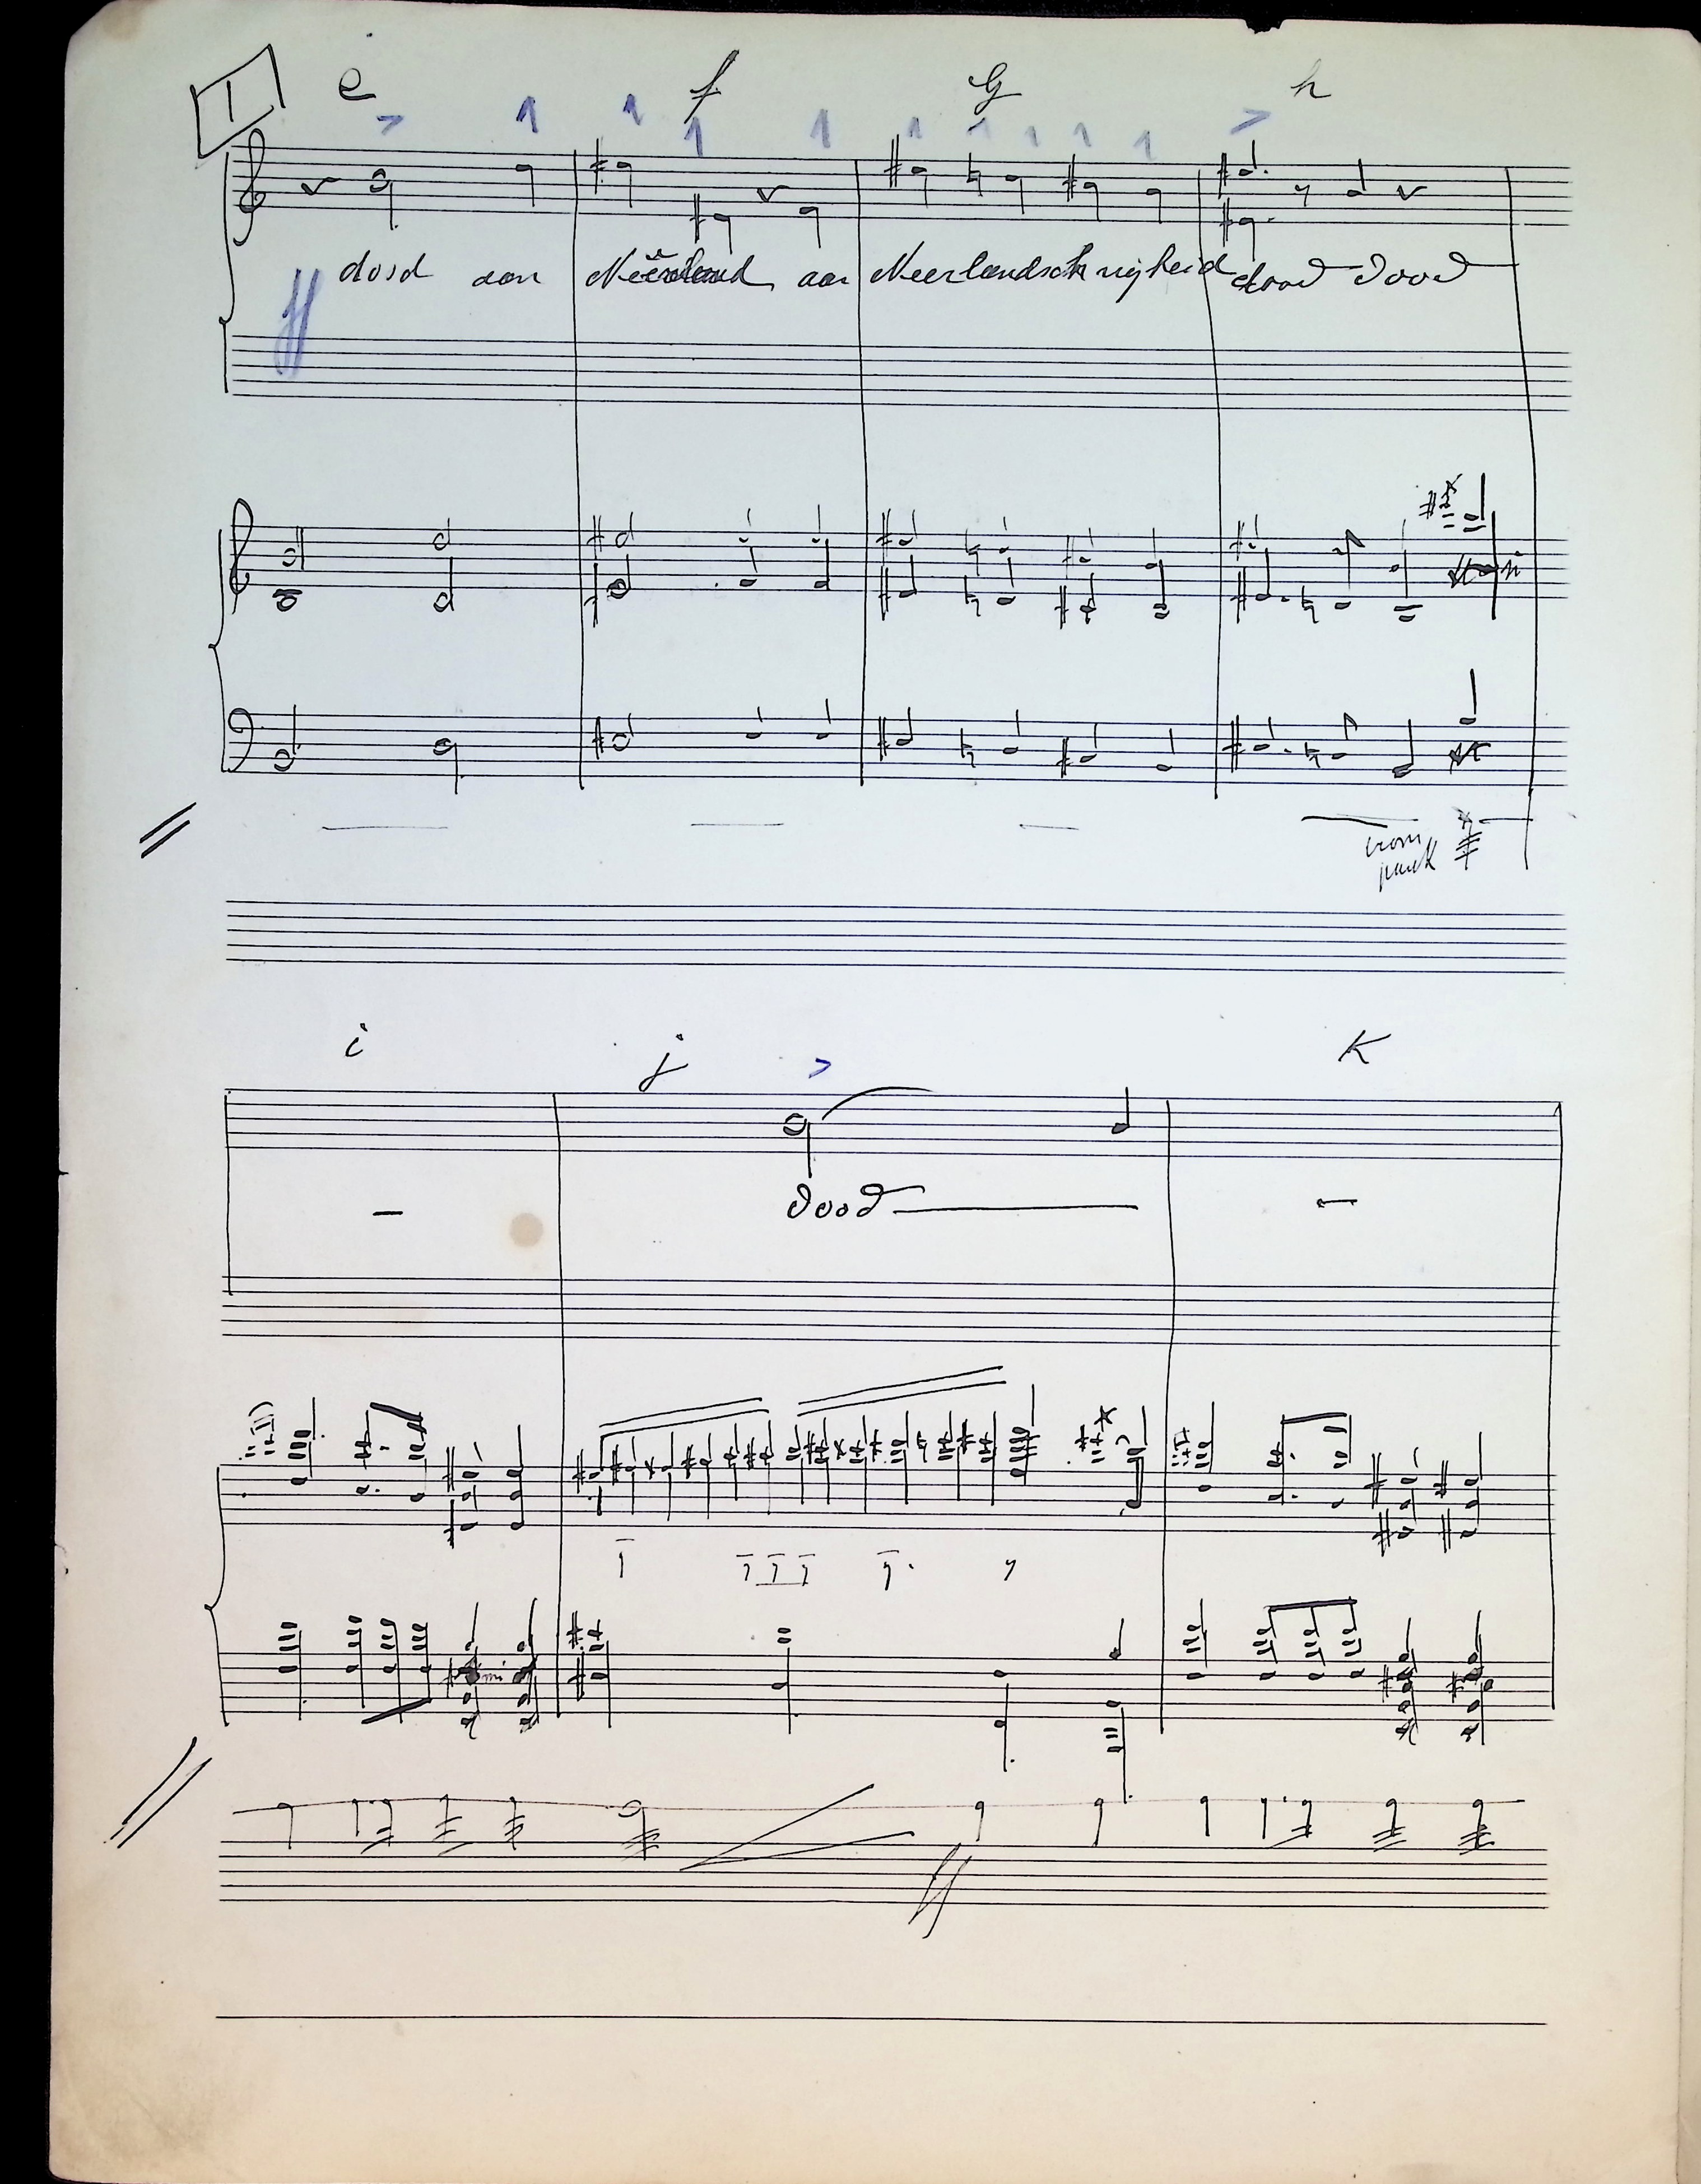 1 e f g h
dood aan Neerland aan Neerlandsch vrijheid dood dood
ff
i j k
dood
ff